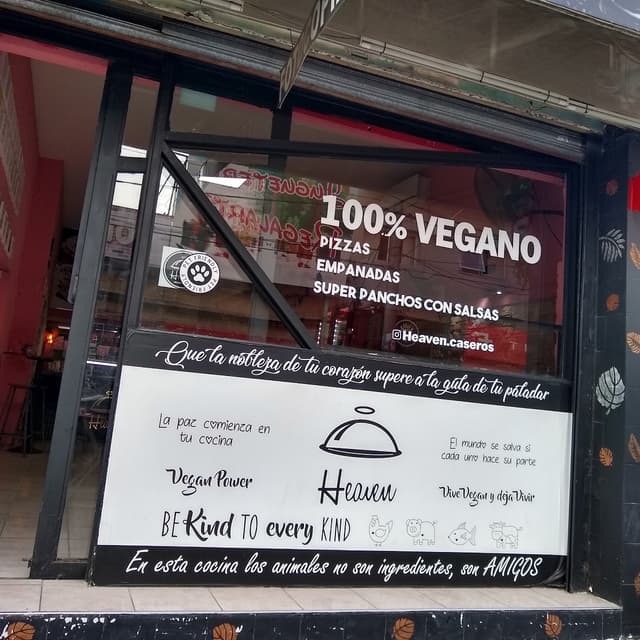 JUGUETER
REGALAR
100% VEGANO
PIZZAS
EMPANADAS
SUPER PANCHOS CON SALSAS
PET FRIENDLY
Heaven.caseros
Que la nobleza de tu corazón supere a la gula de tu paladar
La paz comienza en
tu cocina
El mundo se salva si
cada uno hace su parte
Vegan Power
Heaven
Vive Vegan y deja Vivir
BE Kind TO every KIND
En esta cocina los animales no son ingredientes, son AMIGOS